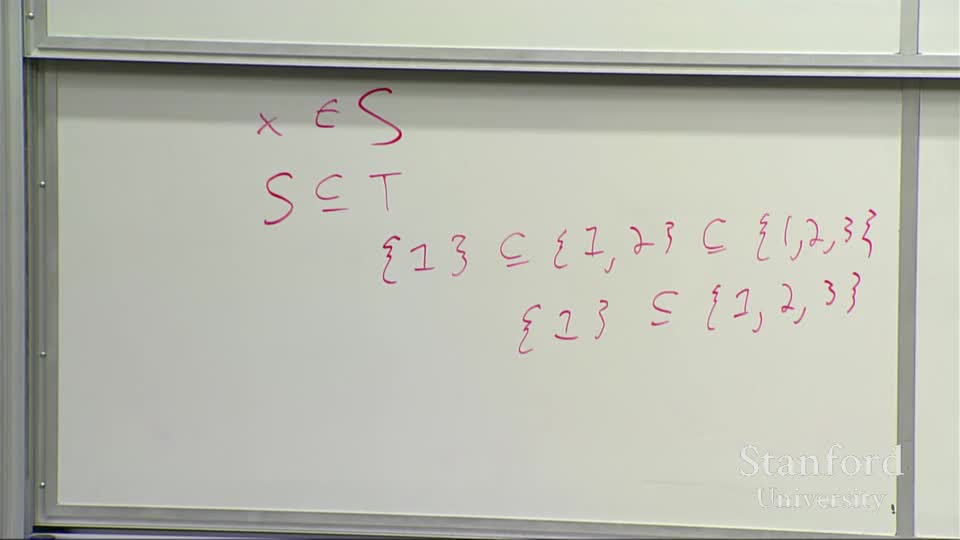 x ∈ S
S ⊆ T
{1} ⊆ {1, 2} ⊆ {1, 2, 3}
{1} ⊆ {1, 2, 3}
Stanford
University